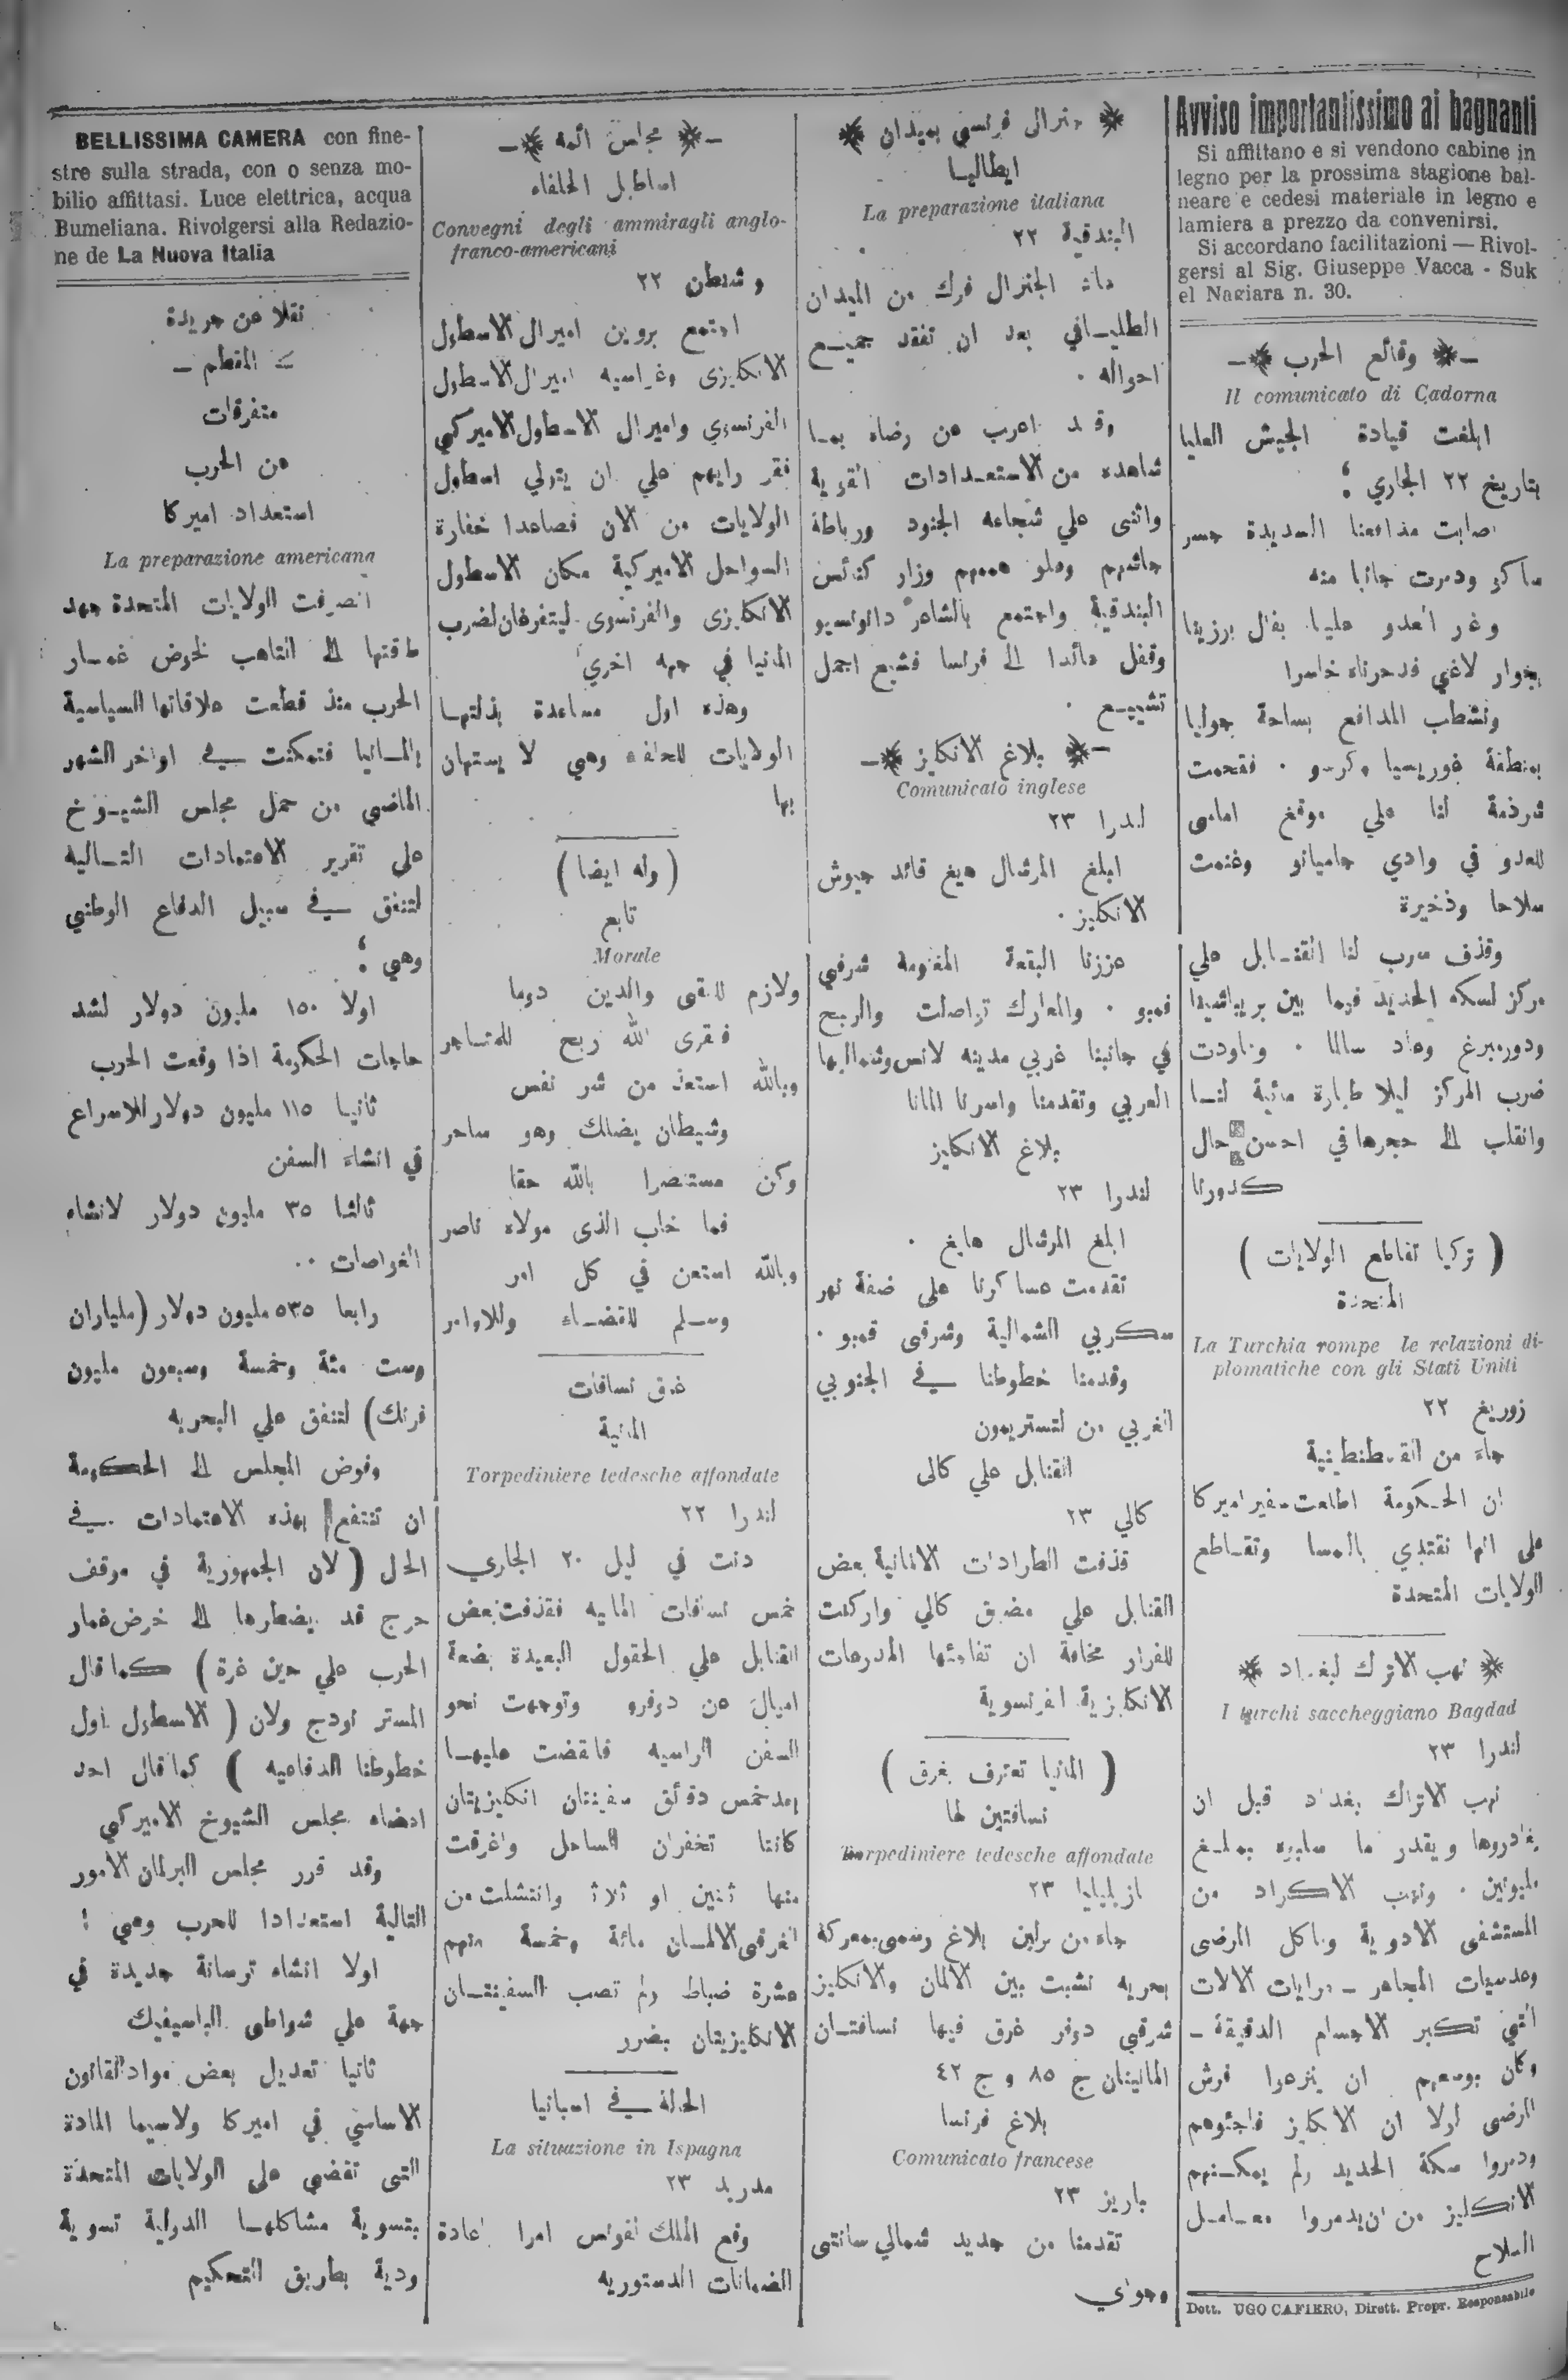 Avviso importantissimo ai bagnanti
Si affittano e si vendono cabine in
legno per la prossima stagione bal-
neare e cedesi materiale in legno e
lamiera a prezzo da convenirsi.
Si accordano facilitazioni — Rivol-
gersi al Sig. Giuseppe Vacca - Suk
el Nagiara n. 30.
وقائع الحرب
Il comunicato di Cadorna
ابلغت قيادة الجيش العليا
بتاريخ ٢٢ الجاري :
اصابت مدافعنا السديدة جسر
ساكر ودمرت جانبا منه
وغر العدو علينا بفال برزينا
بجوار لاغي فدحرناه خاسرا
ونشطب المدافع بساحة جوليا
بمنطقة غوريسيا وكرسو . فقحمت
شرذمة لنا علي موقع امامى
للعدو في وادي جاميانو وغنمت
سلاحا وذخيرة
وقذف سرب لنا القنـابل علي
مركز لسكة الحديد فيما بين بريباشينا
ودورمبرغ وعاد سالما . وعاودت
ضرب المركز ليلا طيارة مائية لنـا
وانقلب الى حجرها في احسن حال
كدورنا
( تركيا تقاطع الولايات )
المتحدة
La Turchia rompe le relazioni di-
plomatiche con gli Stati Uniti
زوريغ ٢٢
جاء من القسطنطينية
ان الحكومة اطلعت سفير اميركا
على انها تقتدي بالنمسا وتقـاطع
الولايات المتحدة
نهب الاترك لبغداد
I turchi saccheggiano Bagdad
لندرا ٢٣
نهب الاتراك بغداد قبل ان
يغادروها ويقدر ما سلبوه بمبلـغ
مليونين . ونهب الاكراد من
المستشفى الادوية وماكل المرضى
وعدسيات المجاهر – مرايات الالات
التي تكبر الاجسام الدقيقة –
وكان بوسعهم ان ينزعوا فرش
المرضى لولا ان الانكليز فاجئوهم
ودمروا سكة الحديد ولم يمكـنهم
الانكليز من ان يدمروا معـامـل
السلاح
Dott. UGO CAFIERO, Dirett. Propr. Responsabile
جنرال فرنسى بميدان
ايطاليـا
La preparazione italiana
البندقية ٢٢
عاد الجنرال فوك من الميدان
الطليـاني بعد ان تفقد جميـع
احواله .
وقـد اعرب عن رضاه بمـا
شاهده من الاستعـدادات القوية
واثنى علي شجاعه الجنود ورباطة
جائشهم وعلو هممهم وزار كنائس
البندقية واجتمع بالشاعر دانونسيو
وقفل عائدا الى فرنسا فشيع اجمل
تشييـع .
بلاغ الانكليز
Comunicato inglese
لندرا ٢٣
ابلغ المرشال هيغ قائد جيوش
الانكليز .
عززنا البقعة المغنومة شرقي
فمبو . والمعارك تواصلت والربح
في جانبنا غربي مدينه لانس وشمالیها
الغربي وتقدمنا واسرنا المانا
بلاغ الانكليز
لندرا ٢٣
ابلغ المرشال هايغ .
تقدمت عساكرنا على ضفة نهر
سكربي الشمالية وشرقى قمبو .
وقدمنا خطوطنا في الجنوبي
الغربي من لنستريمون
القنابل علي كالى
كالي ٢٣
قذفت الطرادات الالمانية بعض
القنابل علي مضيق كالي واركنت
للفرار مخافة ان تفاجئها المدرعات
الانكليزية الفرنسوية
( المانيا تعترف بغرق )
نسافتين لها
Torpediniere tedesche affondate
ازيلياليا ٢٣
جاء من برلين بلاغ رسمى بمعركة
بحريه نشبت بين الالمان والانكليز
شرقي دوفر غرق فيها نسافتـان
المانيتان ج ٨٥ و ج ٤٢
بلاغ فرنسا
Comunicato francese
باريز ٢٣
تقدمنا من جديد شمالي سانتى
وجواي
مجلس ائمة
اساطيل الحلفاء
Convegni degli ammiragli anglo-
franco-americani
وشنطن ٢٢
اجتمع بروين اميرال الاسطول
الانكليزى وغراسيه اميرال الاسطول
الفرنسوي واميرال الاسطول الاميركي
فقر رايهم علي ان يتولي اسطول
الولايات من الان فصاعدا خفارة
السواحل الاميركية مكان الاسطول
الانكليزى والفرنسوى ليتفرغان لضرب
المانيا في جهه اخري
وهذه اول مساعدة بذلتهـا
الولايات للحلفاء وهي لا يستهان
بها
( وله ايضا )
تابع
Morale
ولازم للتقى والدين دوما
فتقوى الله ربح للمتساجر
وبالله استعذ من شر نفس
وشيطان يضلك وهو ساحر
وكن مستنصرا بالله حقا
فما خاب الذى مولاه ناصر
وبالله استعن في كل امر
وسـلم للقضـاء وللاوامر
غرق نسافات
المانية
Torpediniere tedesche affondate
لندرا ٢٢
دنت في ليل ٢٠ الجاري
خمس نسافات المانيه فقذفت بعض
القنابل علي الحقول البعيدة بضعة
اميال عن دوفرو وتوجهت نحو
السفن الراسيه فانقضت عليهـا
بعد خمس دقائق سفينتان انكليزيتان
كانتا تخفران الساحل واغرقت
منها اثنين او ثلاث وانتشلت من
الغرقى الالمـان مائة وخمسة منهم
عشرة ضباط ولم تصب السفينتـان
الانكليزيتان بضرر
الحالة في اسبانيا
La situazione in Ispagna
مدريد ٢٣
وقع الملك الفونس امرا اعادة
الضمانات الدستوريه
BELLISSIMA CAMERA con fine-
stre sulla strada, con o senza mo-
bilio affittasi. Luce elettrica, acqua
Bumeliana. Rivolgersi alla Redazio-
ne de La Nuova Italia
نقلا عن جريدة
– المقطم –
متفرقات
عن الحرب
استعداد اميركا
La preparazione americana
انصرفت الولايات المتحدة جهد
طاقتها الى التاهب لخوض غمـار
الحرب منذ قطعت علاقاتها السياسية
بالمـانيا فتمكنت في اواخر الشهر
الماضي من حمل مجلس الشيـوخ
على تقرير الاعتمادات التـالية
لتنفق في سبيل الدفاع الوطني
وهي :
اولا ١٥٠ مليون دولار لشد
حاجات الحكومة اذا وقعت الحرب
ثانيـا ١١٥ مليون دولار للاسراع
في انشاء السفن
ثالثا ٣٥ مليون دولار لانشاء
الغواصات ..
رابعا ٥٣٥ مليون دولار (ملياران
وست مئة وخمسة وسبعون مليون
فرنك) لتنفق علي البحريه
وفوض المجلس الى الحكومة
ان تنتفع بهذه الاعتمادات في
الحال ( لان الجمهورية في موقف
حرج قد يضطرها الى خوض غمار
الحرب علي حين غرة ) كما قال
المستر لودج ولان ( الاسطول اول
خطوطنا الدفاعيه ) كما قال احد
اعضاء مجلس الشيوخ الاميركي
وقد قرر مجلس البرلمان الامور
التالية استعدادا للحرب وهي :
اولا انشاء ترسانة جديدة في
جهة علي شواطى الباسيفيك
ثانيا تعديل بعض مواد القانون
الاساسي في اميركا ولاسيما المادة
التى تقضي على الولايات المتحدة
بتسوية مشاكلهـا الدولية تسوية
ودية بطريق التحكيم